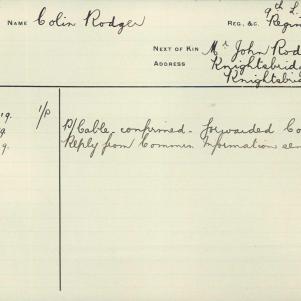 NAME Colin Rodger
REG., &C. 9th L.
Regim
NEXT OF KIN Mr John Rod
ADDRESS Knightsbrid
Knightsbri
19. 1/P P/Cable confirmed - forwarded Co
9. Reply from Commn Information sen
9.